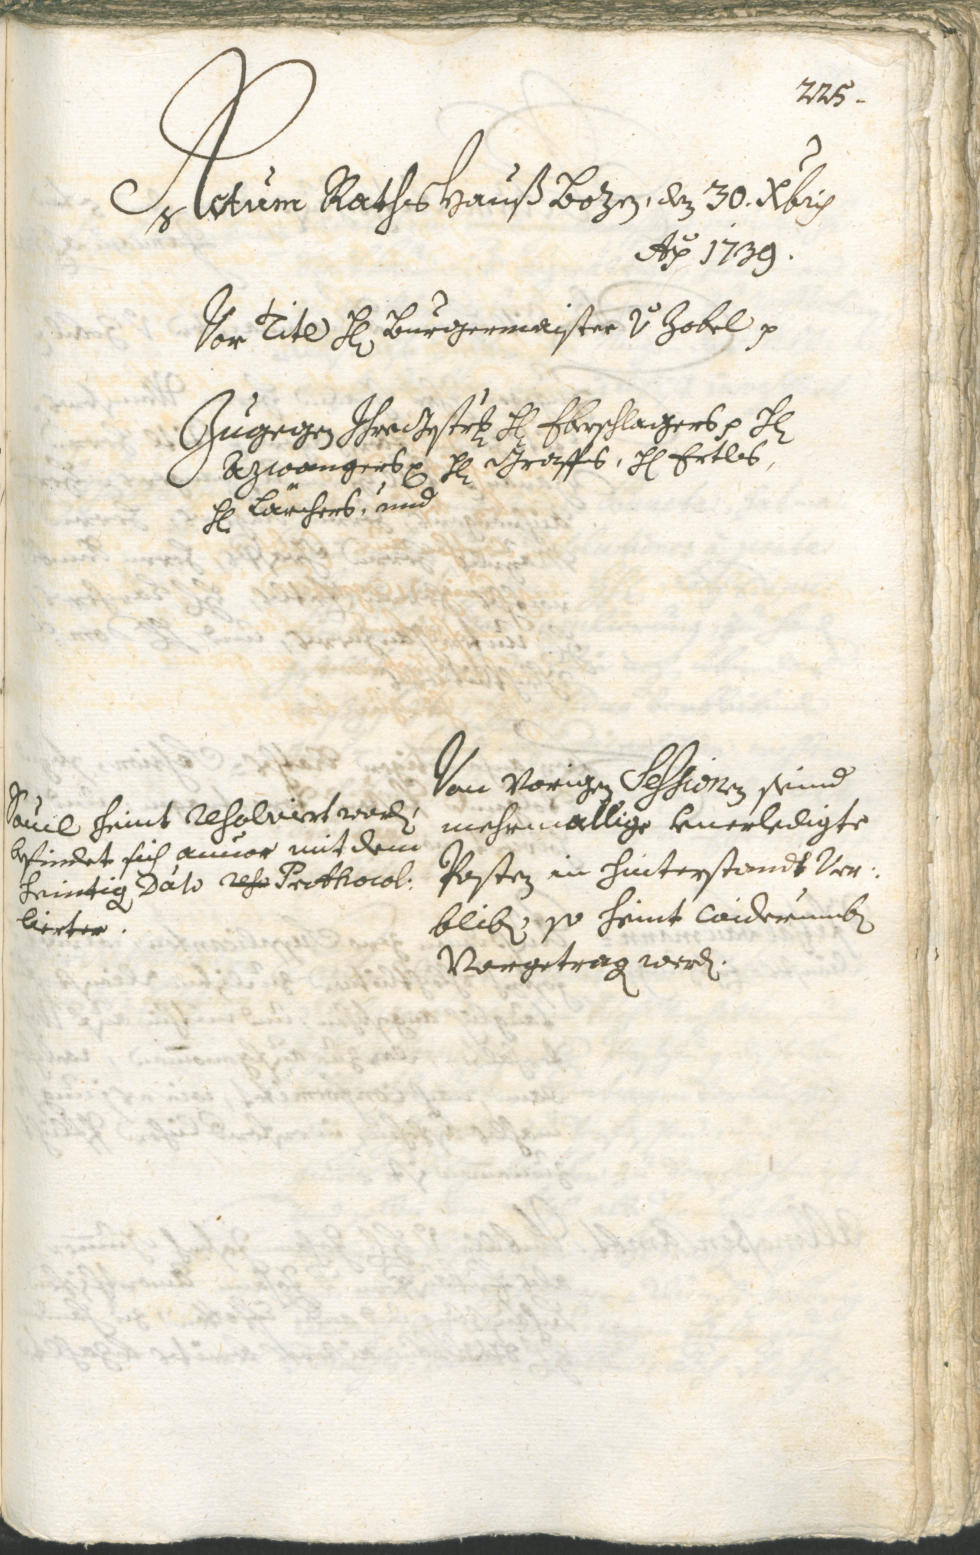 225.
Actum Rathshauß Bozen, den 30. Xbris
Ao 1739.
Vor Titl H: Burgermaister v Zobel p
Zugegen Ihro Gstr: H: Eberschlagers p H:
Azwangers p H: Graffs, H: Ertles,
H: Larchers, und
Von Vorigen Sessionen seind
mehrmallige unerledigte
Posten in hinterstandt Ver:
bliben, so heint widerumben
Vorgetragen worden.
Souil heint resolviert worden,
befindet sich anuor mit dem
heintigen Dato Prothocol:
lierter.